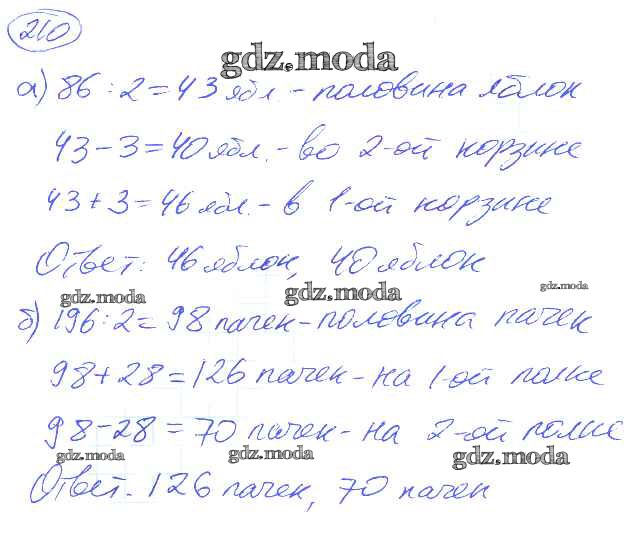 210
gdz.moda
а) 86 : 2 = 43 ябл. - половина яблок
43 - 3 = 40 ябл. - во 2-ой корзине
43 + 3 = 46 ябл. - в 1-ой корзине
Ответ: 46 яблок, 40 яблок
gdz.moda gdz.moda gdz.moda
б) 196 : 2 = 98 пачек - половина пачек
98 + 28 = 126 пачек - на 1-ой полке
98 - 28 = 70 пачек - на 2-ой полке
gdz.moda gdz.moda gdz.moda
Ответ. 126 пачек, 70 пачек